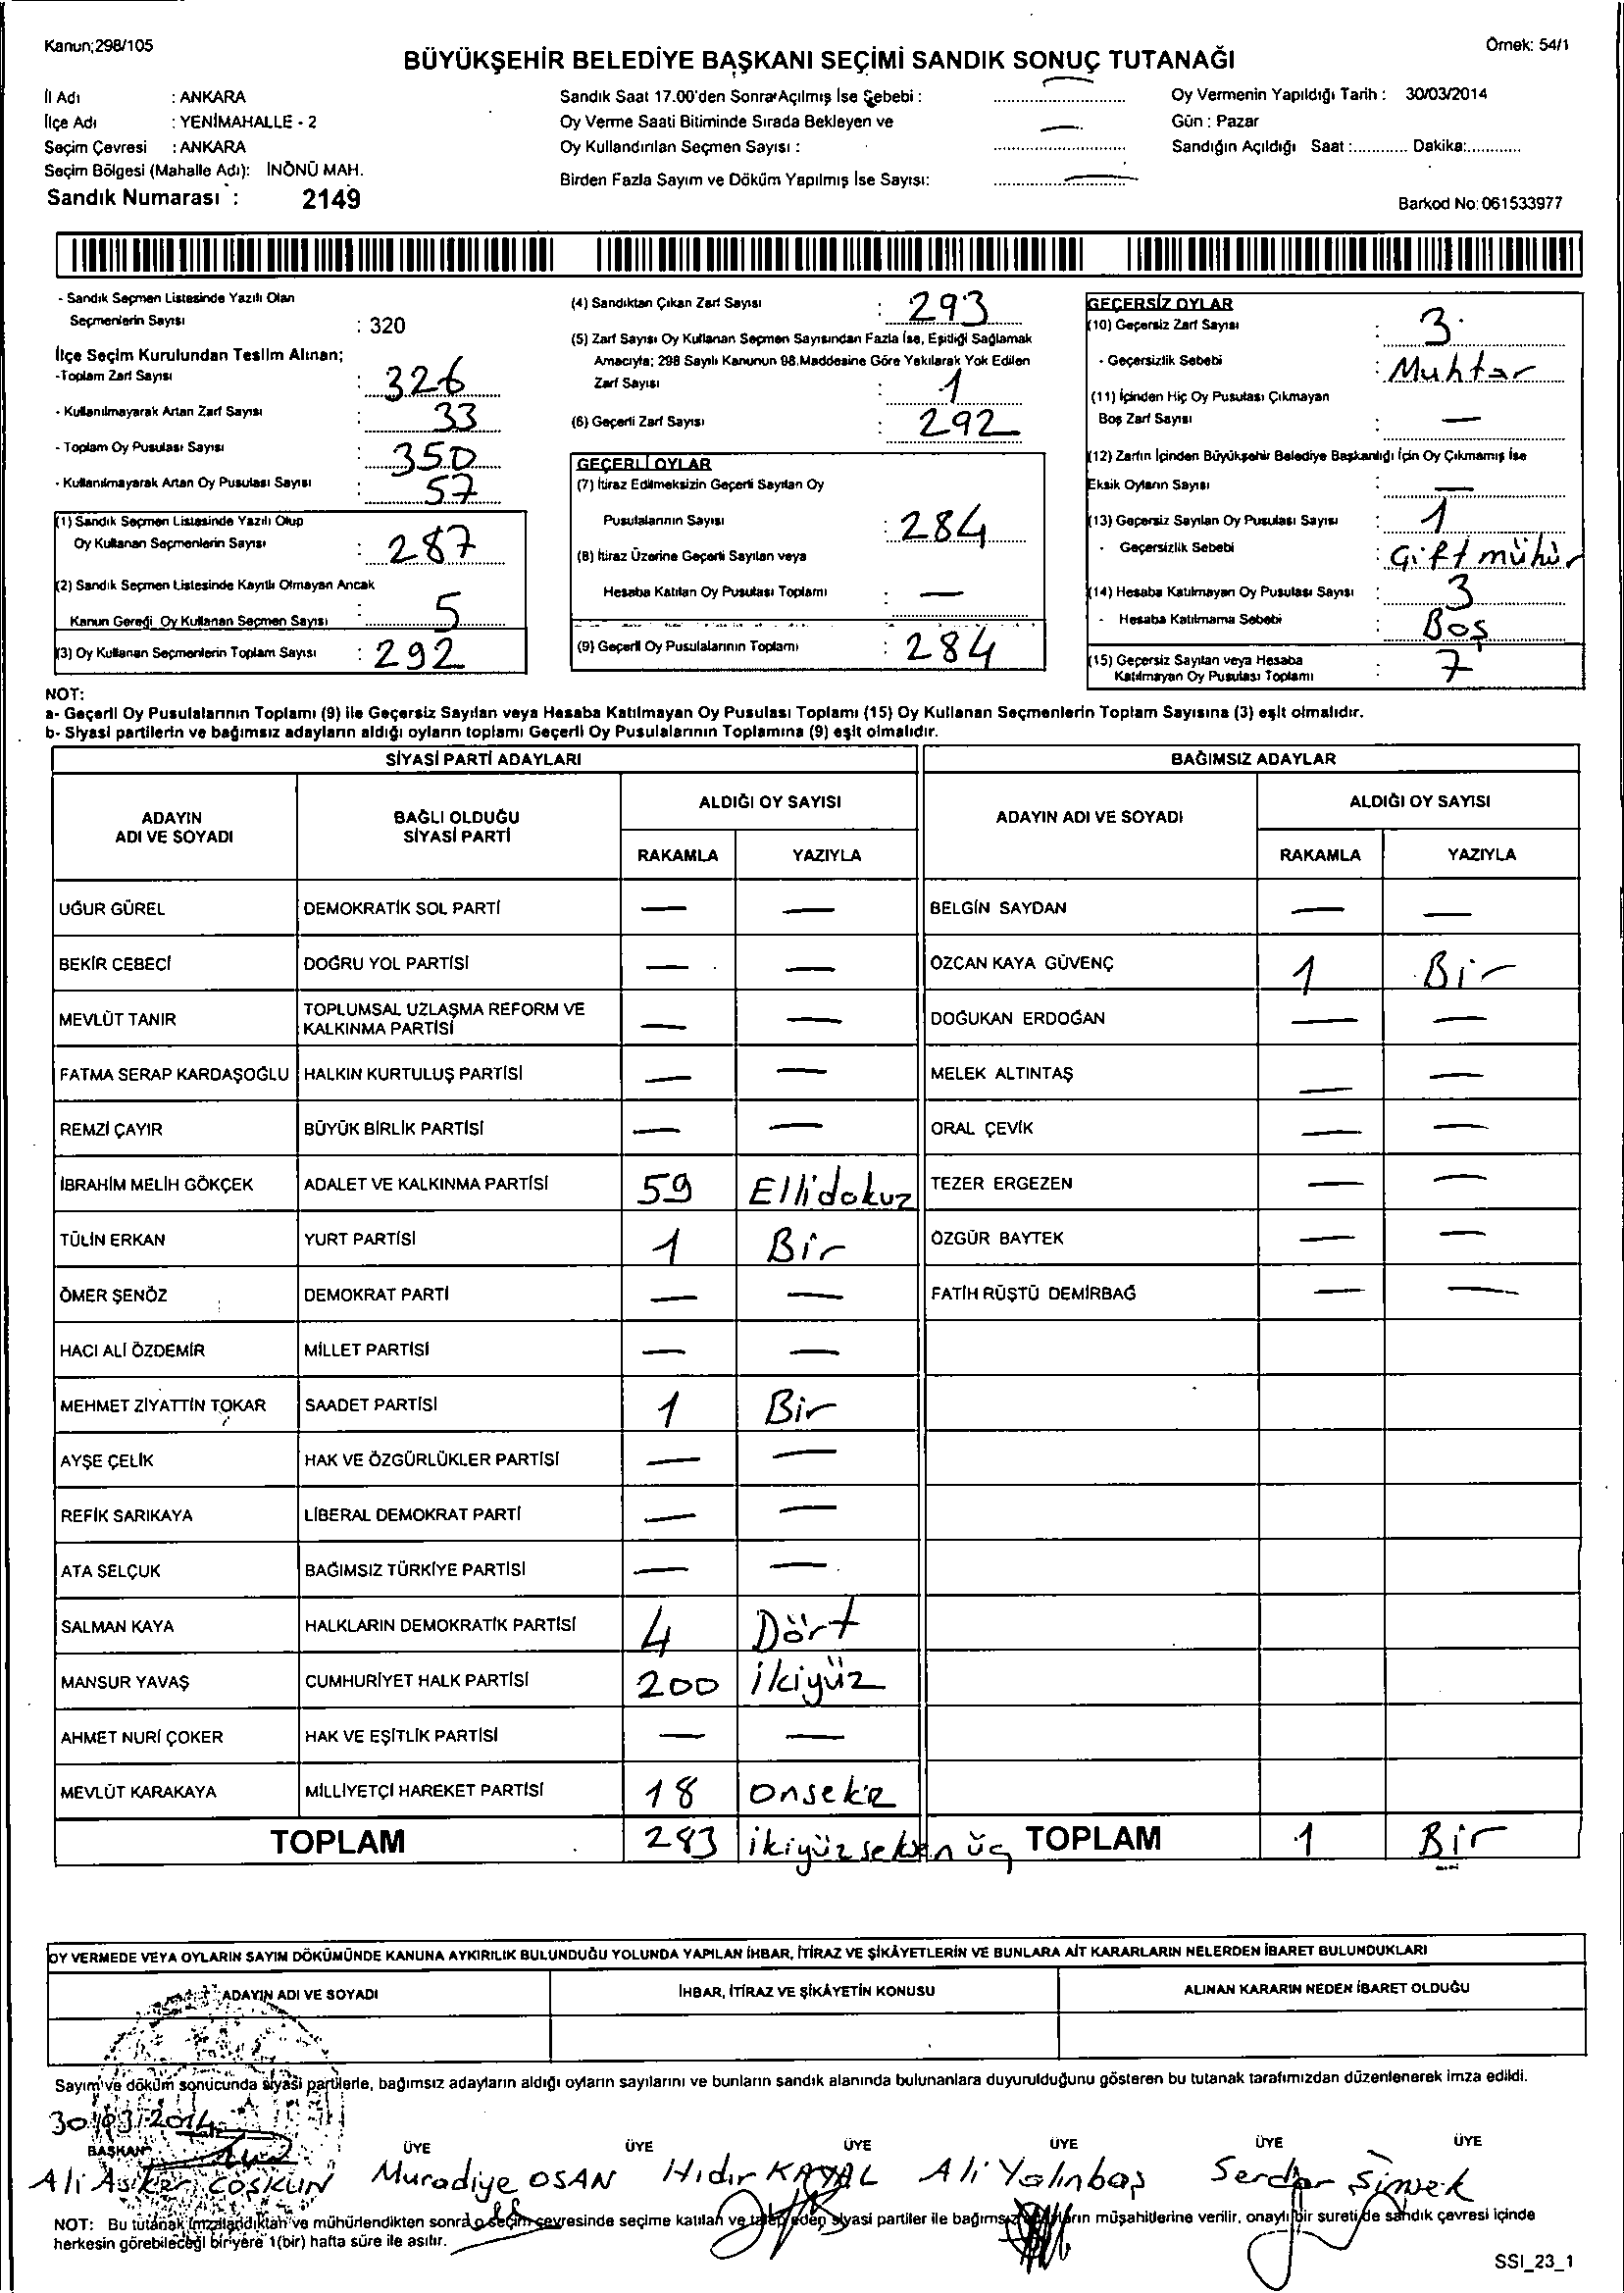 Kanun;298/105
Örnek: 54/1
BÜYÜKŞEHİR BELEDİYE BAŞKANI SEÇİMİ SANDIK SONUÇ TUTANAĞI
İl Adı : ANKARA
İlçe Adı : YENİMAHALLE - 2
Seçim Çevresi : ANKARA
Seçim Bölgesi (Mahalle Adı): İNÖNÜ MAH.
Sandık Numarası : 2149
Sandık Saat 17.00'den Sonra Açılmış İse Sebebi : —
Oy Verme Saati Bitiminde Sırada Bekleyen ve
Oy Kullandırılan Seçmen Sayısı : —
Birden Fazla Sayım ve Döküm Yapılmış İse Sayısı: —
Oy Vermenin Yapıldığı Tarih : 30/03/2014
Gün : Pazar
Sandığın Açıldığı Saat :............ Dakika:............
Barkod No: 061533977
- Sandık Seçmen Listesinde Yazılı Olan
Seçmenlerin Sayısı : 320
İlçe Seçim Kurulundan Teslim Alınan;
-Toplam Zarf Sayısı : 326
- Kullanılmayarak Artan Zarf Sayısı : 33
- Toplam Oy Pusulası Sayısı : 350
- Kullanılmayarak Artan Oy Pusulası Sayısı : 57
(1) Sandık Seçmen Listesinde Yazılı Olup
Oy Kullanan Seçmenlerin Sayısı : 287
(2) Sandık Seçmen Listesinde Kayıtlı Olmayan Ancak
Kanun Gereği Oy Kullanan Seçmen Sayısı : 5
(3) Oy Kullanan Seçmenlerin Toplam Sayısı : 292
(4) Sandıktan Çıkan Zarf Sayısı : 293
(5) Zarf Sayısı Oy Kullanan Seçmen Sayısından Fazla İse, Eşitliği Sağlamak
Amacıyla; 298 Sayılı Kanunun 98.Maddesine Göre Yakılarak Yok Edilen
Zarf Sayısı : 1
(6) Geçerli Zarf Sayısı : 292
GEÇERLİ OYLAR
(7) İtiraz Edilmeksizin Geçerli Sayılan Oy
Pusulalarının Sayısı : 284
(8) İtiraz Üzerine Geçerli Sayılan veya
Hesaba Katılan Oy Pusulası Toplamı : —
(9) Geçerli Oy Pusulalarının Toplamı : 284
GEÇERSİZ OYLAR
(10) Geçersiz Zarf Sayısı : 3
- Geçersizlik Sebebi : Muhtar
(11) İçinden Hiç Oy Pusulası Çıkmayan
Boş Zarf Sayısı : —
(12) Zarfın İçinden Büyükşehir Belediye Başkanlığı İçin Oy Çıkmamış İse
Eksik Oyların Sayısı : —
(13) Geçersiz Sayılan Oy Pusulası Sayısı : 1
- Geçersizlik Sebebi : Çift mühür
(14) Hesaba Katılmayan Oy Pusulası Sayısı : 3
- Hesaba Katılmama Sebebi : Boş
(15) Geçersiz Sayılan veya Hesaba
Katılmayan Oy Pusulası Toplamı : 7
NOT:
a- Geçerli Oy Pusulalarının Toplamı (9) ile Geçersiz Sayılan veya Hesaba Katılmayan Oy Pusulası Toplamı (15) Oy Kullanan Seçmenlerin Toplam Sayısına (3) eşit olmalıdır.
b- Siyasi partilerin ve bağımsız adayların aldığı oyların toplamı Geçerli Oy Pusulalarının Toplamına (9) eşit olmalıdır.
SİYASİ PARTİ ADAYLARI BAĞIMSIZ ADAYLAR
ADAYIN ADI VE SOYADI BAĞLI OLDUĞU SİYASİ PARTİ ALDIĞI OY SAYISI ADAYIN ADI VE SOYADI ALDIĞI OY SAYISI
RAKAMLA YAZIYLA RAKAMLA YAZIYLA
UĞUR GÜREL DEMOKRATİK SOL PARTİ — — BELGİN SAYDAN — —
BEKİR CEBECİ DOĞRU YOL PARTİSİ — — ÖZCAN KAYA GÜVENÇ 1 Bir
MEVLÜT TANIR TOPLUMSAL UZLAŞMA REFORM VE KALKINMA PARTİSİ — — DOĞUKAN ERDOĞAN — —
FATMA SERAP KARDAŞOĞLU HALKIN KURTULUŞ PARTİSİ — — MELEK ALTINTAŞ — —
REMZİ ÇAYIR BÜYÜK BİRLİK PARTİSİ — — ORAL ÇEVİK — —
İBRAHİM MELİH GÖKÇEK ADALET VE KALKINMA PARTİSİ 59 Ellidokuz TEZER ERGEZEN — —
TÜLİN ERKAN YURT PARTİSİ 1 Bir ÖZGÜR BAYTEK — —
ÖMER ŞENÖZ DEMOKRAT PARTİ — — FATİH RÜŞTÜ DEMİRBAĞ — —
HACI ALİ ÖZDEMİR MİLLET PARTİSİ — —
MEHMET ZİYATTİN TOKAR SAADET PARTİSİ 1 Bir
AYŞE ÇELİK HAK VE ÖZGÜRLÜKLER PARTİSİ — —
REFİK SARIKAYA LİBERAL DEMOKRAT PARTİ — —
ATA SELÇUK BAĞIMSIZ TÜRKİYE PARTİSİ — —
SALMAN KAYA HALKLARIN DEMOKRATİK PARTİSİ 4 Dört
MANSUR YAVAŞ CUMHURİYET HALK PARTİSİ 200 ikiyüz
AHMET NURİ ÇOKER HAK VE EŞİTLİK PARTİSİ — —
MEVLÜT KARAKAYA MİLLİYETÇİ HAREKET PARTİSİ 18 onsekiz
TOPLAM 283 ikiyüzseksen üç TOPLAM 1 Bir
OY VERMEDE VEYA OYLARIN SAYIM DÖKÜMÜNDE KANUNA AYKIRILIK BULUNDUĞU YOLUNDA YAPILAN İHBAR, İTİRAZ VE ŞİKÂYETLERİN VE BUNLARA AİT KARARLARIN NELERDEN İBARET BULUNDUKLARI
ADAYIN ADI VE SOYADI İHBAR, İTİRAZ VE ŞİKÂYETİN KONUSU ALINAN KARARIN NEDEN İBARET OLDUĞU
Sayım ve döküm sonucunda siyasi partilerle, bağımsız adayların aldığı oyların sayılarını ve bunların sandık alanında bulunanlara duyurulduğunu gösteren bu tutanak tarafımızdan düzenlenerek imza edildi.
30/03/2014
BAŞKAN ÜYE ÜYE ÜYE ÜYE ÜYE ÜYE
Ali Asker COŞKUN Muradiye OSAN Hıdır KAYAL Ali Yalınbaş Serdar Şimşek
NOT: Bu tutanak imzalandıktan ve mühürlendikten sonra o seçim çevresinde seçime katılan ve talep eden siyasi partiler ile bağımsız adayların müşahitlerine verilir, onaylı bir sureti de sandık çevresi içinde
herkesin görebileceği bir yere 1(bir) hafta süre ile asılır.
SSI_23_1